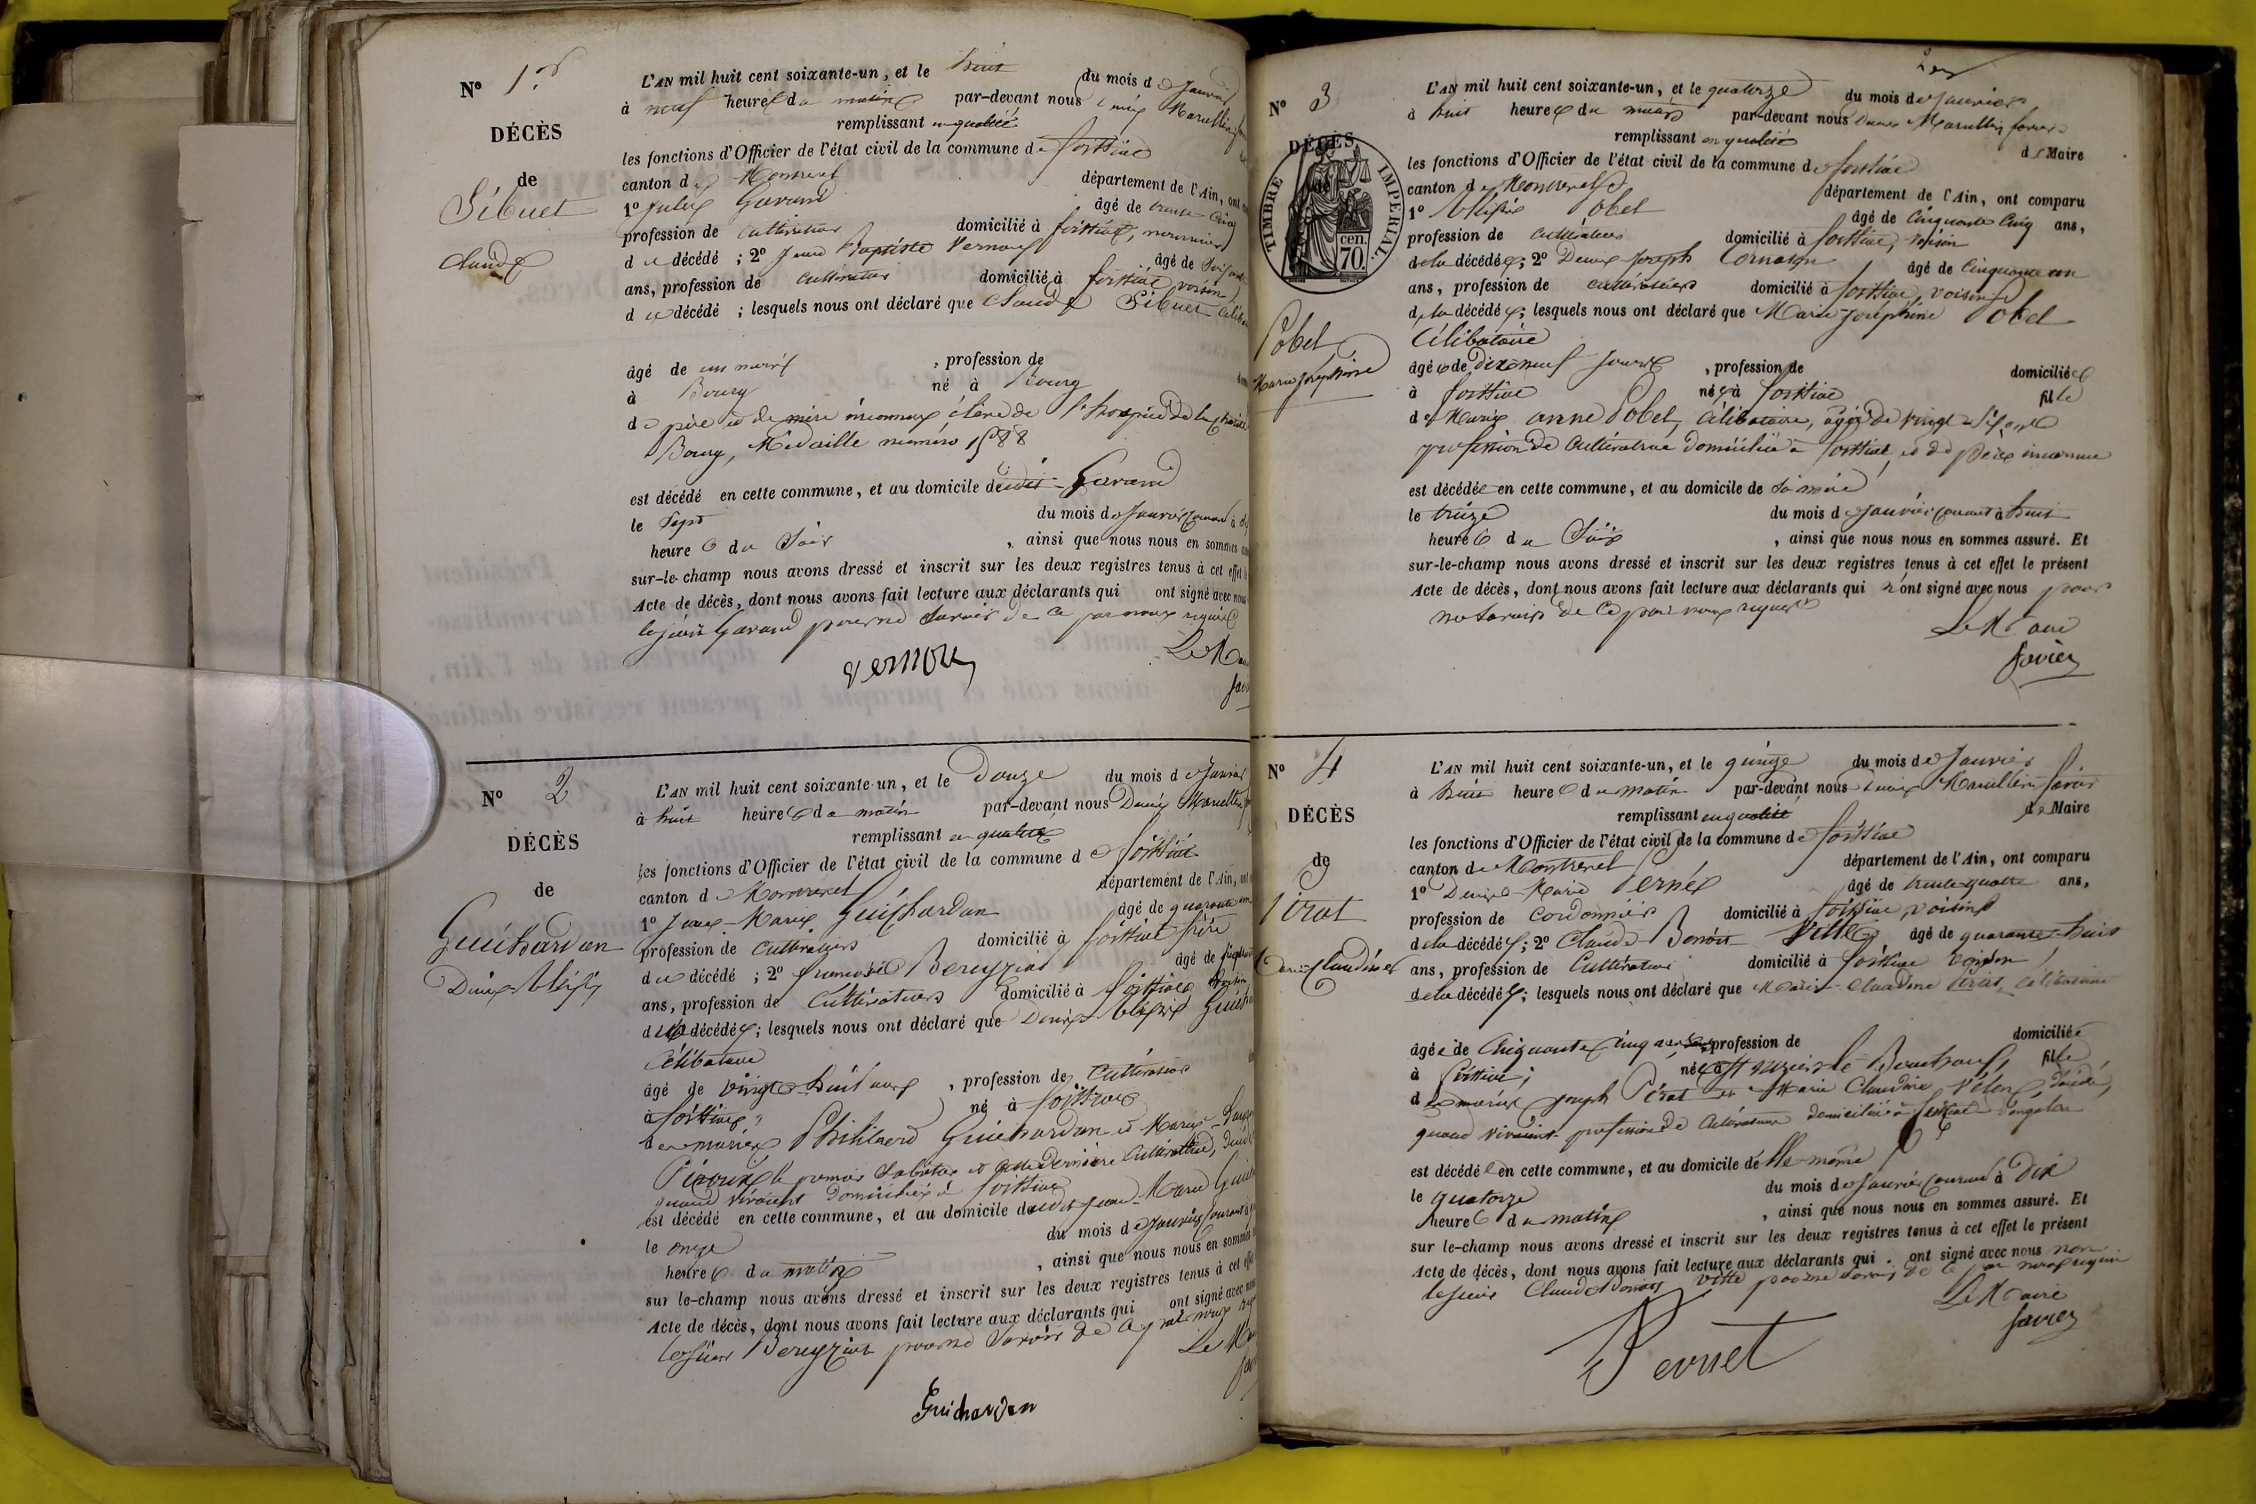 N° 1er
DÉCÈS
de
Sibuet
Claude
L'AN mil huit cent soixante-un, et le huit du mois de Janvier
à neuf heures du matin par-devant nous Denis Marcellin
remplissant en qualité
les fonctions d'Officier de l'état civil de la commune de foissiat
canton de Montrevel département de l'Ain, ont
1° Jules Gavand âgé de trente cinq
profession de cultivateur domicilié à foissiat, nourricier
du décédé ; 2° Jean Baptiste Vernoux âgé de
ans, profession de cultivateur domicilié à foissiat voisin
du décédé ; lesquels nous ont déclaré que Claude Sibuet
âgé de un mois , profession de
à Bourg né à Bourg
de père et de mère inconnus élève de l'hospice de la charité
Bourg, Médaille numéro 1588
est décédé en cette commune, et au domicile dudit Gavand
le Sept du mois de Janvier courant à
heures du Soir , ainsi que nous nous en sommes
sur-le-champ nous avons dressé et inscrit sur les deux registres tenus à cet effet
Acte de décès, dont nous avons fait lecture aux déclarants qui ont signé avec nous
le sieur Gavand pour ne savoir de ce par nous requis
Le Maire
Vernoux
N° 2
DÉCÈS
de
Guichardan
Denis Alexis
L'AN mil huit cent soixante-un, et le Douze du mois de Janvier
à huit heures du matin par-devant nous Denis Marcellin
remplissant en qualité
les fonctions d'Officier de l'état civil de la commune de foissiat
canton de Montrevel département de l'Ain,
1° Jean-Marie Guichardan âgé de quarante
profession de cultivateur domicilié à foissiat frère
du décédé ; 2° françois Bereyziat âgé de
ans, profession de Cultivateur domicilié à foissiat voisin
du décédé ; lesquels nous ont déclaré que Denis Alexis
Célibataire
âgé de vingt-huit ans , profession de Cultivateur
à foissiat né à foissiat
de mariés Philibert Guichardan et Marie
le premier et cette dernière cultivatrice,
quand vivaient domiciliés à foissiat
est décédé en cette commune, et au domicile dudit Jean-Marie
le onze du mois de Janvier courant à
heures du matin , ainsi que nous nous en sommes
sur le-champ nous avons dressé et inscrit sur les deux registres tenus à cet effet
Acte de décès, dont nous avons fait lecture aux déclarants qui ont signé avec nous
le sieur Bereyziat pour ne savoir de ce par nous
Le Maire
Guichardan
2
N° 3
DÉCÈS
de
TIMBRE IMPÉRIAL
70 cen.
Pobel
Marie Joséphine
L'AN mil huit cent soixante-un, et le quatorze du mois de Janvier
à huit heures du matin par-devant nous Denis Marcellin favier
remplissant en qualité de Maire
les fonctions d'Officier de l'état civil de la commune de foissiat
canton de Montrevel département de l'Ain, ont comparu
1° Alexis Pobel âgé de Cinquante Cinq ans,
profession de cultivateur domicilié à foissiat, voisin
de la décédée ; 2° Denis Joseph Cornaton âgé de Cinquante un
ans, profession de cultivateur domicilié à foissiat, voisin
de la décédée ; lesquels nous ont déclaré que Marie-Joséphine Pobel
Célibataire
âgée de dix neuf jours , profession de domiciliée
à foissiat née à foissiat fille
de Marie anne Pobel, Célibataire, âgée de vingt
profession de Cultivatrice domiciliée à foissiat, et de père inconnu
est décédée en cette commune, et au domicile de sa mère
le treize du mois de Janvier courant à huit
heures du Soir , ainsi que nous nous en sommes assuré. Et
sur-le-champ nous avons dressé et inscrit sur les deux registres tenus à cet effet le présent
Acte de décès, dont nous avons fait lecture aux déclarants qui n'ont signé avec nous pour
ne savoir de ce par nous requis
Le Maire
favier
N° 4
DÉCÈS
de
Pirat
Marie Claudine
L'AN mil huit cent soixante-un, et le quinze du mois de Janvier
à huit heures du matin par-devant nous Denis Marcellin favier
remplissant en qualité de Maire
les fonctions d'Officier de l'état civil de la commune de foissiat
canton de Montrevel département de l'Ain, ont comparu
1° Denis-Marie Pernet âgé de trente quatre ans,
profession de cordonnier domicilié à foissiat voisin
de la décédée ; 2° Claude-Benoît Vitte âgé de quarante-huit
ans, profession de Cultivateur domicilié à foissiat
de la décédée ; lesquels nous ont déclaré que Marie-Claudine Pirat, célibataire
âgée de Cinquante Cinq ans profession de domiciliée
à foissiat; née à St Nizier-le-Bouchoux, fille
de mariés Joseph Pirat et Marie Claudine
quand vivaient profession de cultivateur domiciliés à foissiat
est décédée en cette commune, et au domicile d'elle-même
le quatorze du mois de Janvier courant à Dix
heures du matin , ainsi que nous nous en sommes assuré. Et
sur le-champ nous avons dressé et inscrit sur les deux registres tenus à cet effet le présent
Acte de décès, dont nous avons fait lecture aux déclarants qui ont signé avec nous non
le sieur Claude Benoît Vitte pour ne savoir de ce par nous requis
Le Maire
favier
Pernet